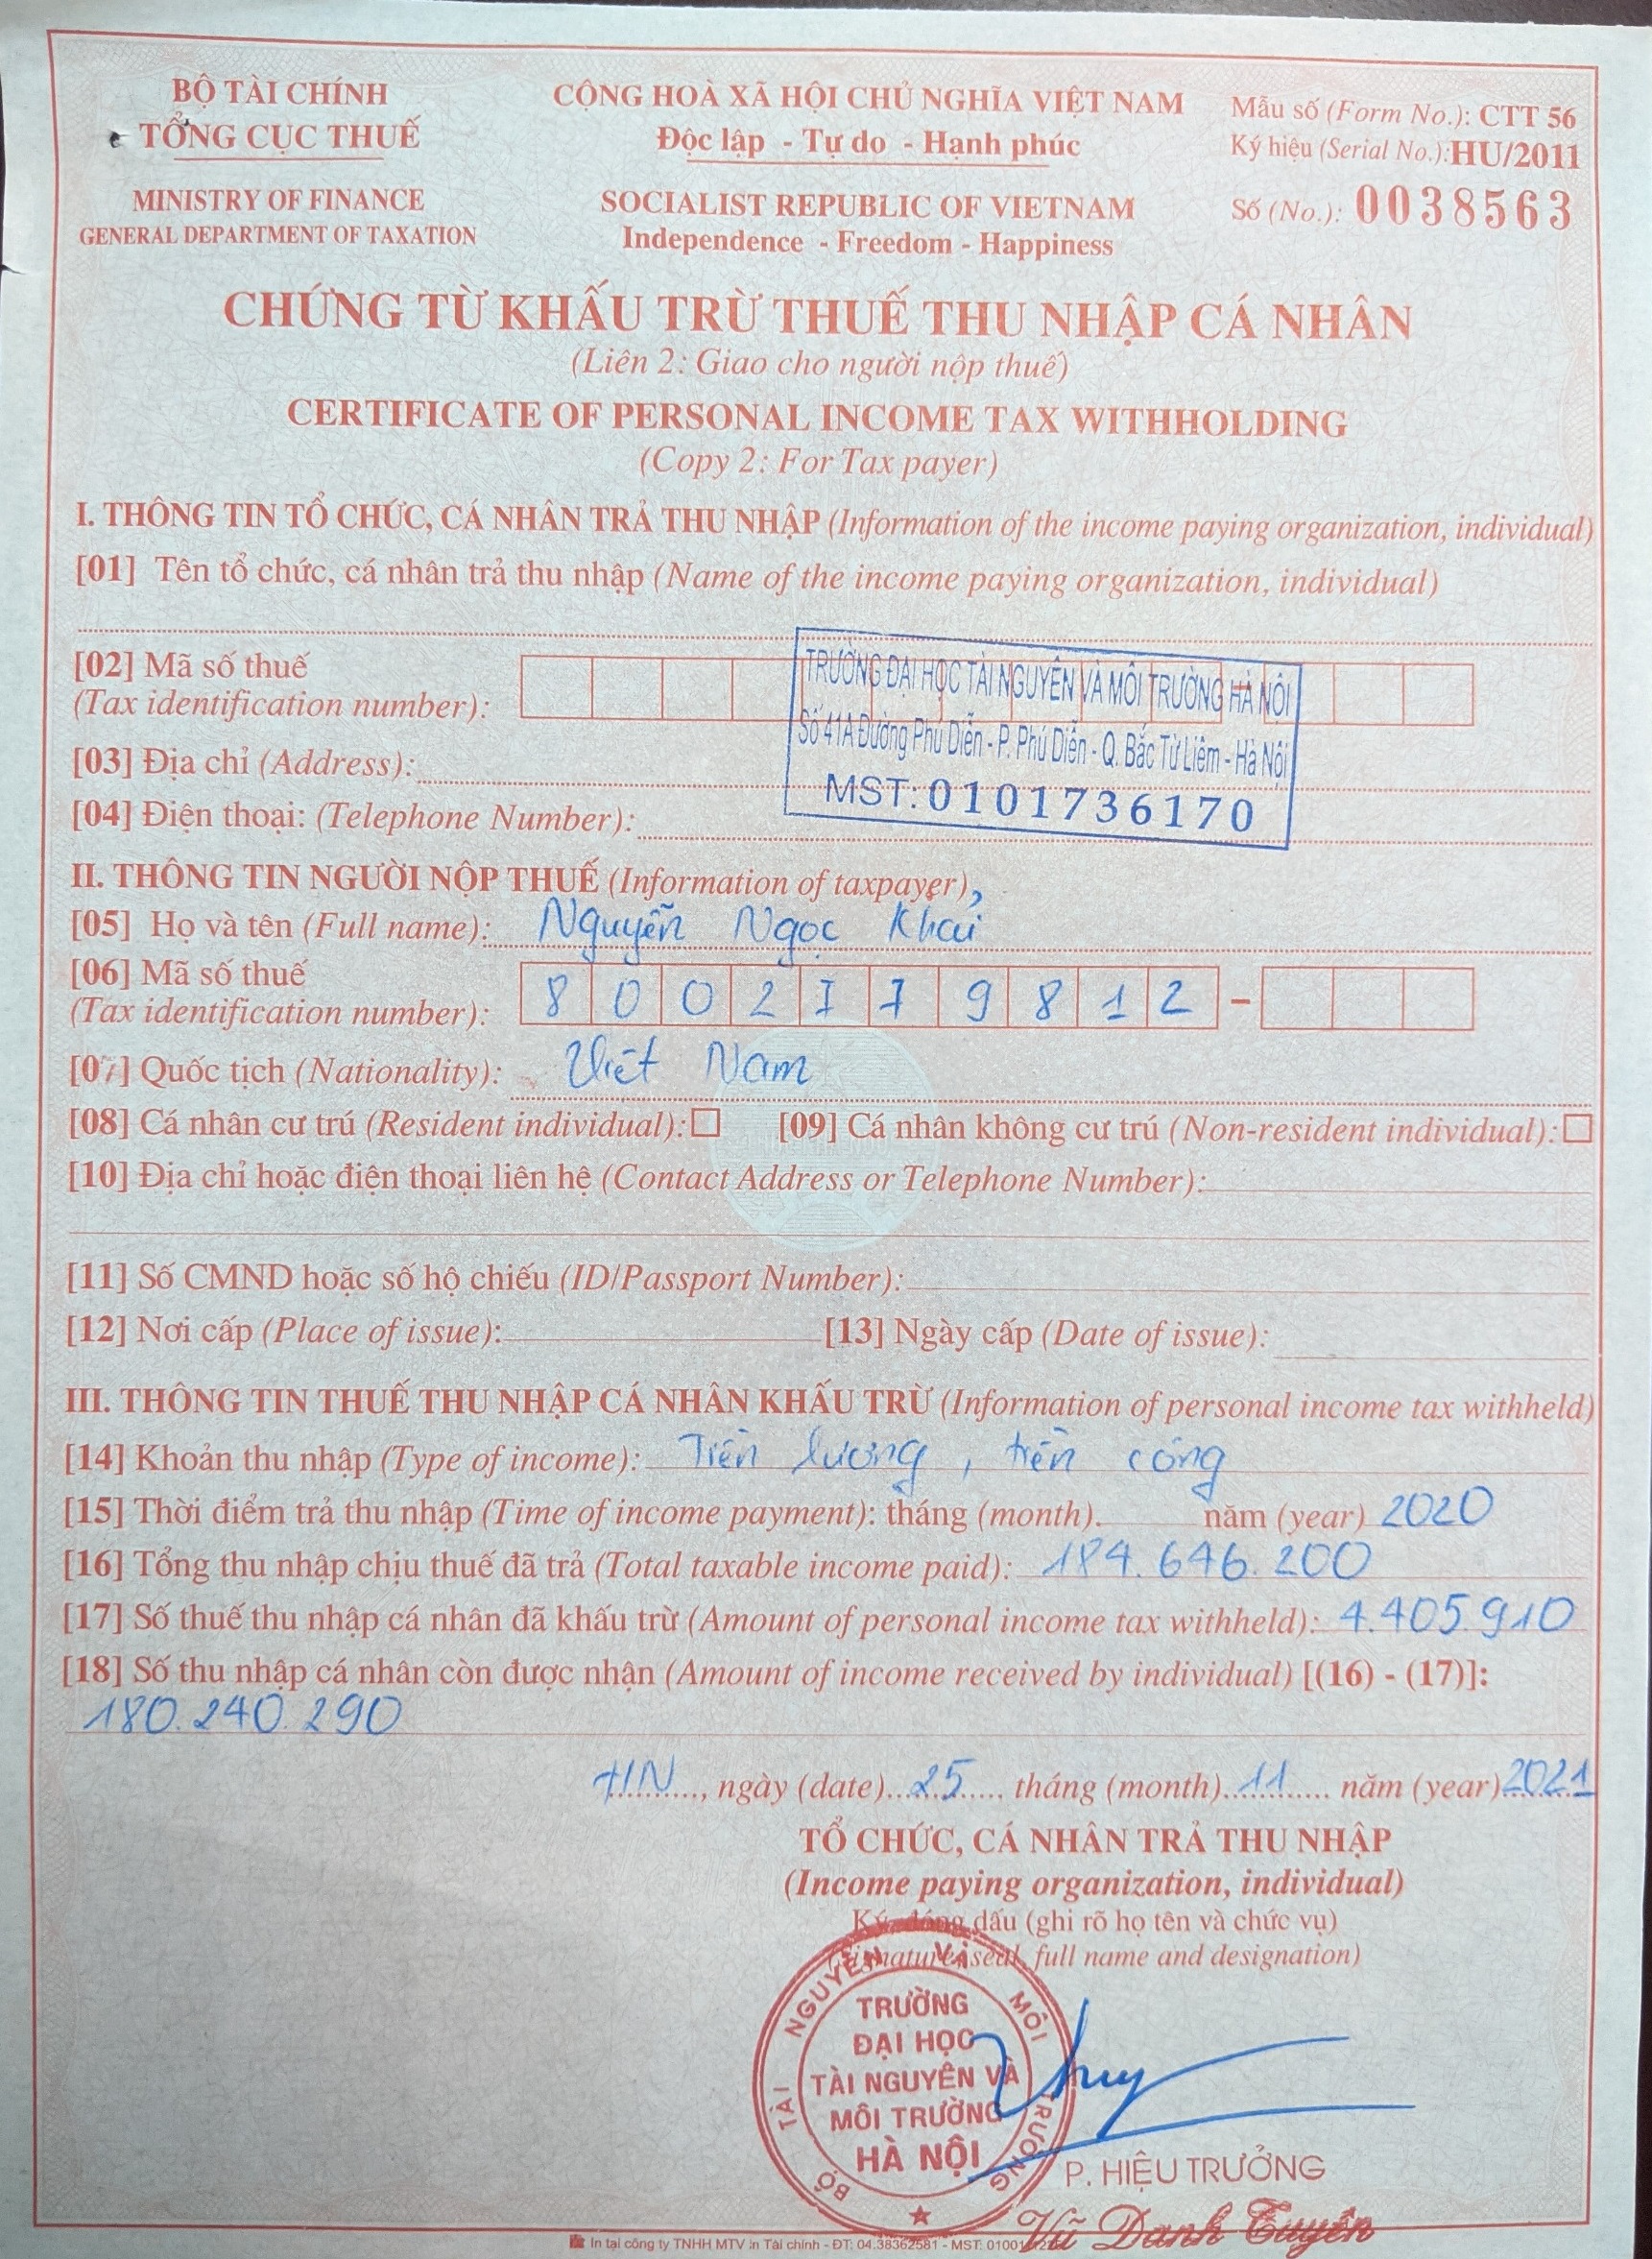 BỘ TÀI CHÍNH
TỔNG CỤC THUẾ
MINISTRY OF FINANCE
GENERAL DEPARTMENT OF TAXATION
CỘNG HOÀ XÃ HỘI CHỦ NGHĨA VIỆT NAM
Độc lập - Tự do - Hạnh phúc
SOCIALIST REPUBLIC OF VIETNAM
Independence - Freedom - Happiness
Mẫu số (Form No.): CTT 56
Ký hiệu (Serial No.): HU/2011
Số (No.): 0038563
CHỨNG TỪ KHẤU TRỪ THUẾ THU NHẬP CÁ NHÂN
(Liên 2: Giao cho người nộp thuế)
CERTIFICATE OF PERSONAL INCOME TAX WITHHOLDING
(Copy 2: For Tax payer)
I. THÔNG TIN TỔ CHỨC, CÁ NHÂN TRẢ THU NHẬP (Information of the income paying organization, individual)
[01] Tên tổ chức, cá nhân trả thu nhập (Name of the income paying organization, individual)
[02] Mã số thuế
(Tax identification number):
TRƯỜNG ĐẠI HỌC TÀI NGUYÊN VÀ MÔI TRƯỜNG HÀ NỘI
Số 41A Đường Phú Diễn - P. Phú Diễn - Q. Bắc Từ Liêm - Hà Nội
MST: 0101736170
[03] Địa chỉ (Address):
[04] Điện thoại: (Telephone Number):
II. THÔNG TIN NGƯỜI NỘP THUẾ (Information of taxpayer)
[05] Họ và tên (Full name): Nguyễn Ngọc Khải
[06] Mã số thuế
(Tax identification number): 8002779812 -
[07] Quốc tịch (Nationality): Việt Nam
[08] Cá nhân cư trú (Resident individual): [09] Cá nhân không cư trú (Non-resident individual):
[10] Địa chỉ hoặc điện thoại liên hệ (Contact Address or Telephone Number):
[11] Số CMND hoặc số hộ chiếu (ID/Passport Number):
[12] Nơi cấp (Place of issue): [13] Ngày cấp (Date of issue):
III. THÔNG TIN THUẾ THU NHẬP CÁ NHÂN KHẤU TRỪ (Information of personal income tax withheld)
[14] Khoản thu nhập (Type of income): Tiền lương, tiền công
[15] Thời điểm trả thu nhập (Time of income payment): tháng (month) năm (year) 2020
[16] Tổng thu nhập chịu thuế đã trả (Total taxable income paid): 184.646.200
[17] Số thuế thu nhập cá nhân đã khấu trừ (Amount of personal income tax withheld): 4.405.910
[18] Số thu nhập cá nhân còn được nhận (Amount of income received by individual) [(16) - (17)]:
180.240.290
HN, ngày (date) 25 tháng (month) 11 năm (year) 2021
TỔ CHỨC, CÁ NHÂN TRẢ THU NHẬP
(Income paying organization, individual)
Ký, đóng dấu (ghi rõ họ tên và chức vụ)
(Signature, seal, full name and designation)
BỘ TÀI NGUYÊN VÀ MÔI TRƯỜNG
TRƯỜNG
ĐẠI HỌC
TÀI NGUYÊN VÀ
MÔI TRƯỜNG
HÀ NỘI
P. HIỆU TRƯỞNG
Vũ Danh Tuyên
In tại công ty TNHH MTV in Tài chính - ĐT: 04.38362581 - MST: